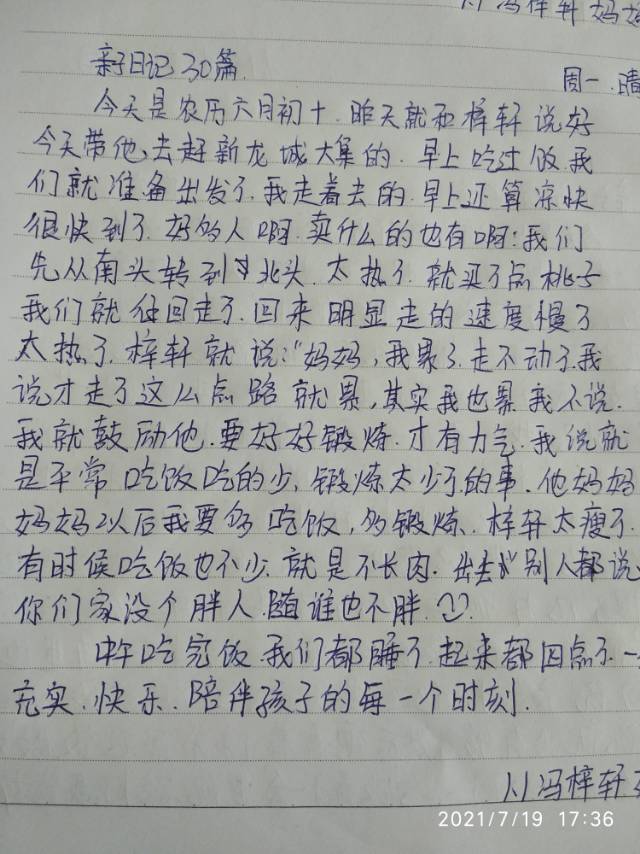 从冯梓轩妈妈
亲子日记30篇.
周一.晴
今天是农历六月初十.昨天就和梓轩说好
今天带他去赶新龙城大集的.早上吃过饭我
们就准备出发了.我走着去的.早上还算凉快
很快到了.好多人啊.卖什么的也有啊:我们
先从南头转到北头.太热了.就买了点桃子
我们就往回走了.回来明显走的速度慢了
太热了.梓轩就说:“妈妈,我累了.走不动了.我
说才走了这么点路就累,其实我也累我不说.
我就鼓励他.要好好锻炼.才有力气.我说就
是平常吃饭吃的少,锻炼太少了的事.他妈妈
妈妈以后我要多吃饭,多锻炼.梓轩太瘦了.
有时候吃饭也不少.就是不长肉.出去别人都说
你们家没个胖人.随谁也不胖.
中午吃完饭.我们都睡了.起来都四点了.一
充实.快乐.陪伴孩子的每一个时刻.
从冯梓轩
2021/7/19 17:36